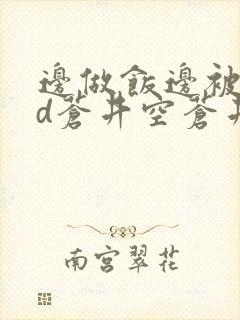 邊做飯邊被
d蒼井空蒼井
南宮翠花